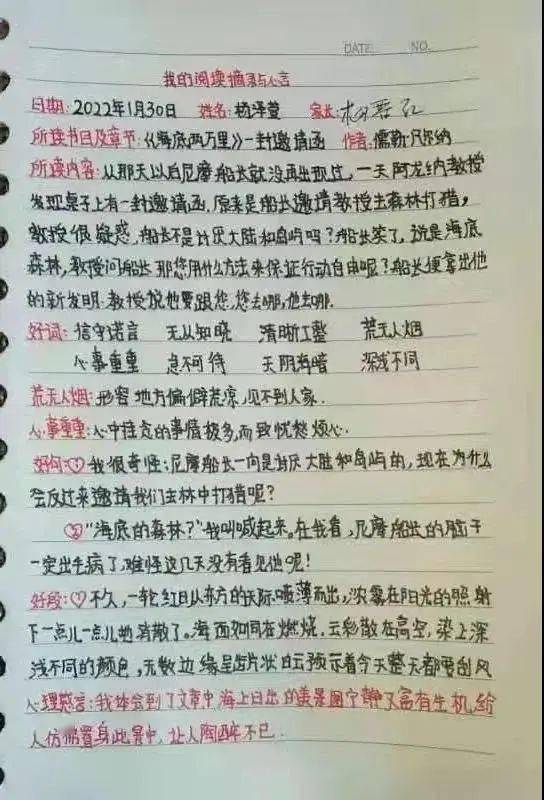 DATE. NO.
我的阅读摘录与心言
日期:2022年1月30日 姓名:杨泽萱 家长:
所读书目及章节:《海底两万里》一封邀请函 作者:儒勒·凡尔纳
所读内容:从那天以后尼摩船长就没再出现过,一天阿龙纳教授
发现桌子上有一封邀请函.原来是船长邀请教授去森林打猎,
教授很疑惑,船长不是讨厌大陆和岛屿吗?船长笑了,说是海底
森林,教授问船长那您用什么方法来保证行动自由呢?船长便拿出他
的新发明.教授说他要跟您,您去哪,他去哪.
好词:信守诺言 无从知晓 清晰工整 荒无人烟
心事重重 急不可待 天阴海暗 深浅不同
荒无人烟:形容地方偏僻荒凉,见不到人家.
心事重重:心中挂念的事情极多,而致忧愁烦心.
好句:①我很奇怪:尼摩船长一向是讨厌大陆和岛屿的,现在为什么
会反过来邀请我们去林中打猎呢?
②"海底的森林?"我叫喊起来.在我看,尼摩船长的脑子
一定出毛病了,难怪这几天没有看见他呢!
好段:①不久,一轮红日从东方的天际喷薄而出,浓雾在阳光的照射
下一点儿一点儿地消散了。海面如同在燃烧.云彩散在高空,染上深
浅不同的颜色,无数边缘呈齿片状的云预示着今天整天都要刮风
心理感言:我体会到了文章中海上日出的美景图宁静又富有生机给
人仿佛置身此景中,让人陶醉不已.